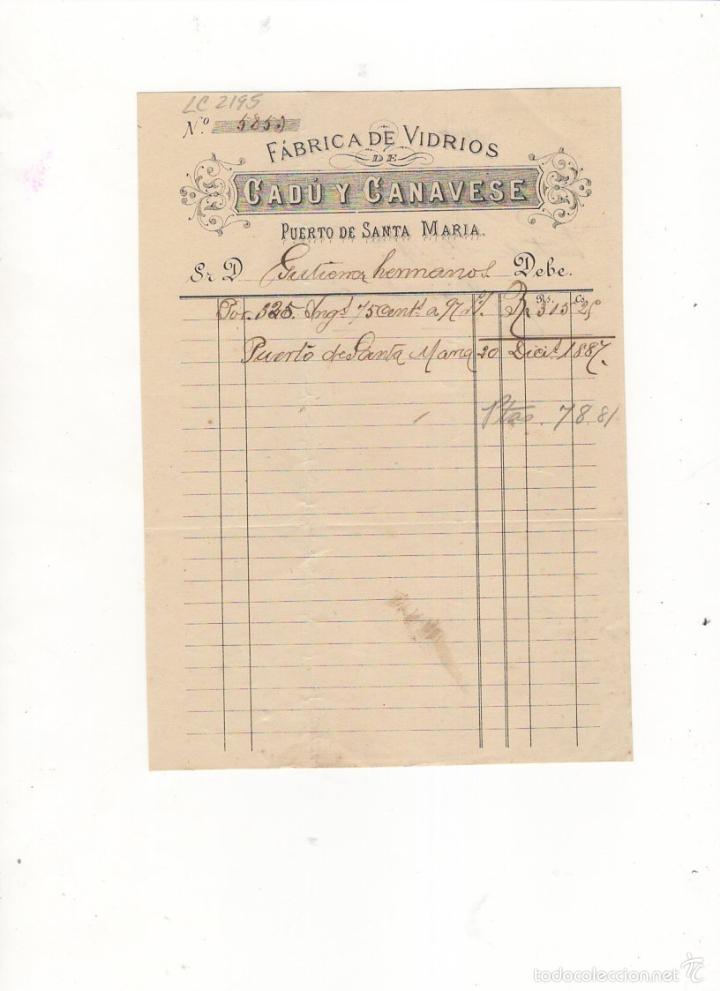 LC 2195
N.º 5859
FÁBRICA DE VIDRIOS
DE
CADÚ Y CANAVESE
PUERTO DE SANTA MARIA.
Sr D. hermanos. Debe.
Rs. Cs.
Por 325. 75 cent.s a 97 315 25
Puerto de Santa Maria 20 Dici.e 1887.
Ptas. 78.81
todocoleccion.net